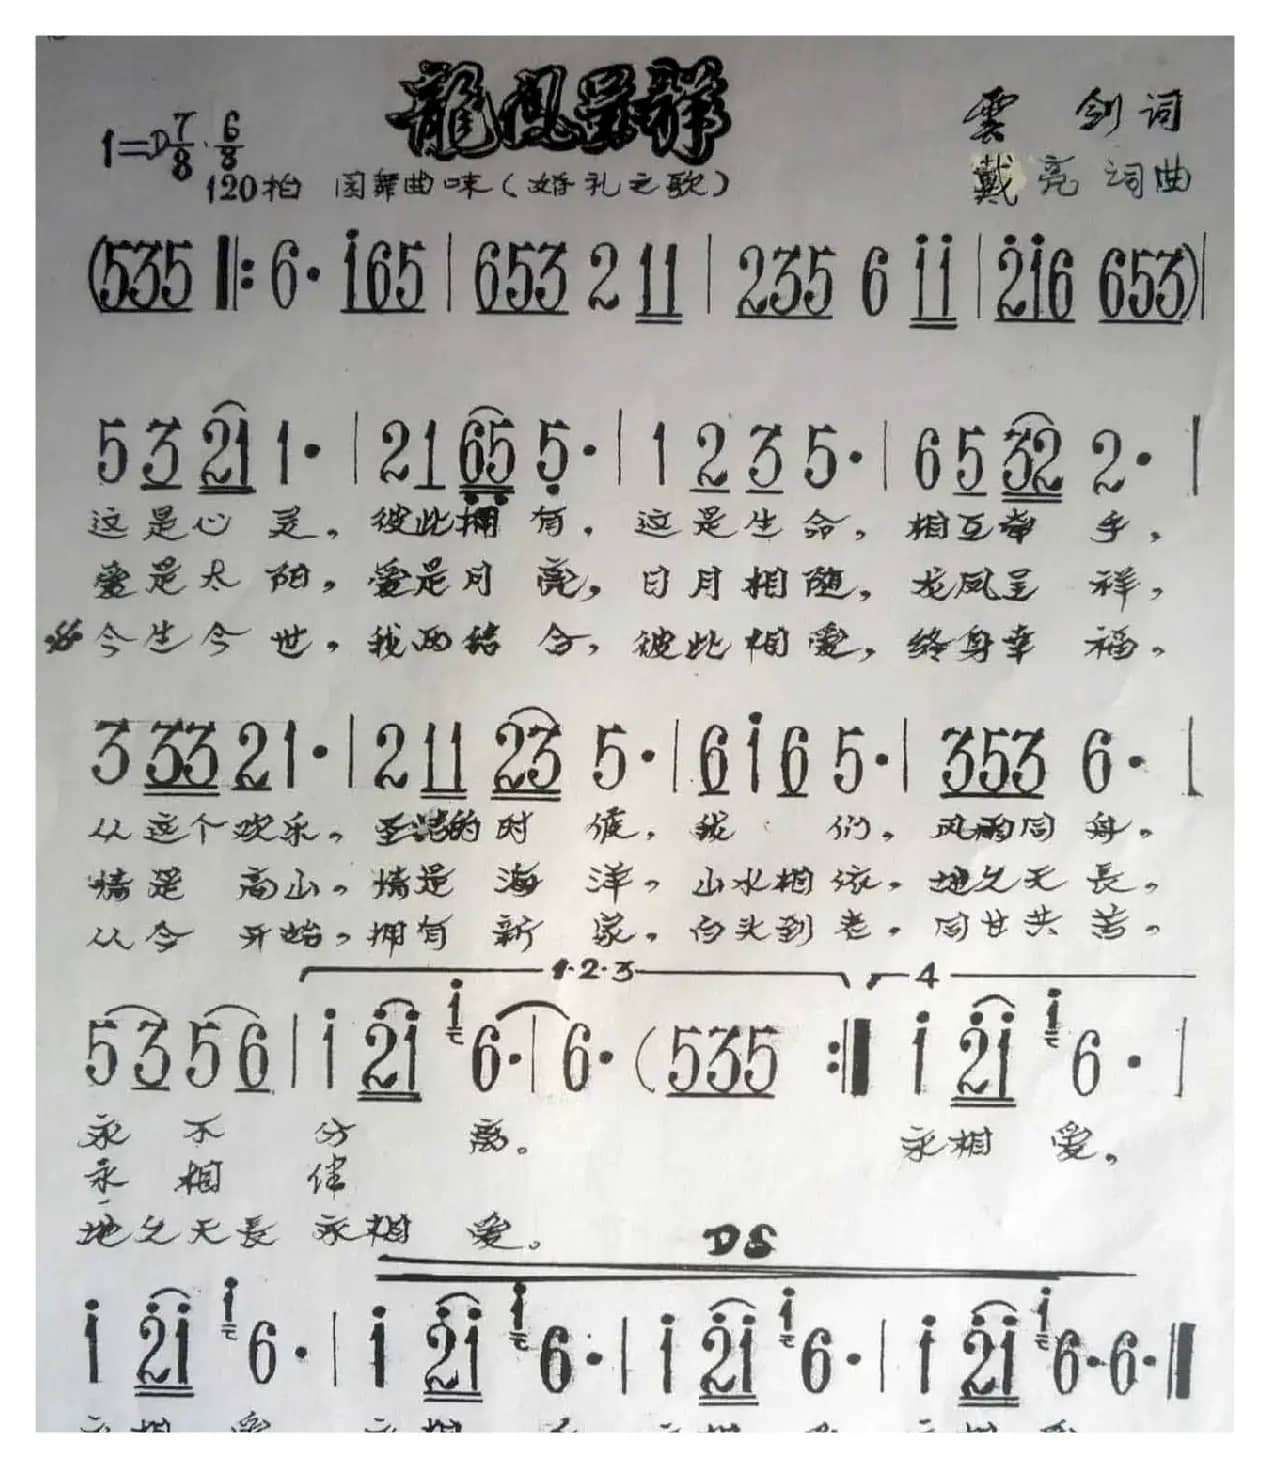 龍鳳呈祥
1=D 7/8 6/8
雲 剑词
120拍 圆舞曲味(婚礼之歌)
戴亮 词曲
(535 ‖: 6· i65 | 653 2 11 | 235 6 ii | 2i6 653) |
5 3 21 1· | 21 65 5· | 1 2 3 5· | 6 5 32 2· |
这是心 灵,彼此拥 有,这是生 命,相互牵 手,
爱是太 阳,爱是月 亮,日月相 随,龙凤呈 祥,
今生今 世,我两结 合,彼此相 爱,终身幸 福,
3 33 2 1· | 2 11 23 5· | 6 i 6 5· | 353 6· |
从这个欢乐,圣洁的时 候,我 们,风雨同 舟,
情是 高山,情是 海 洋,山水相 依,地久天 長,
从今 开始,拥有 新 家,白头到 老,同甘共 苦,
1·2·3 4
5 3 5 6 | i 2i i 6· | 6· (535 :‖ i 2i i 6· |
永 不 分 离。 永相 爱,
永 相 伴
地久天長 永相 爱。
DS
i 2i i 6· | i 2i i 6· | i 2i i 6· | i 2i i 6· 6· ‖